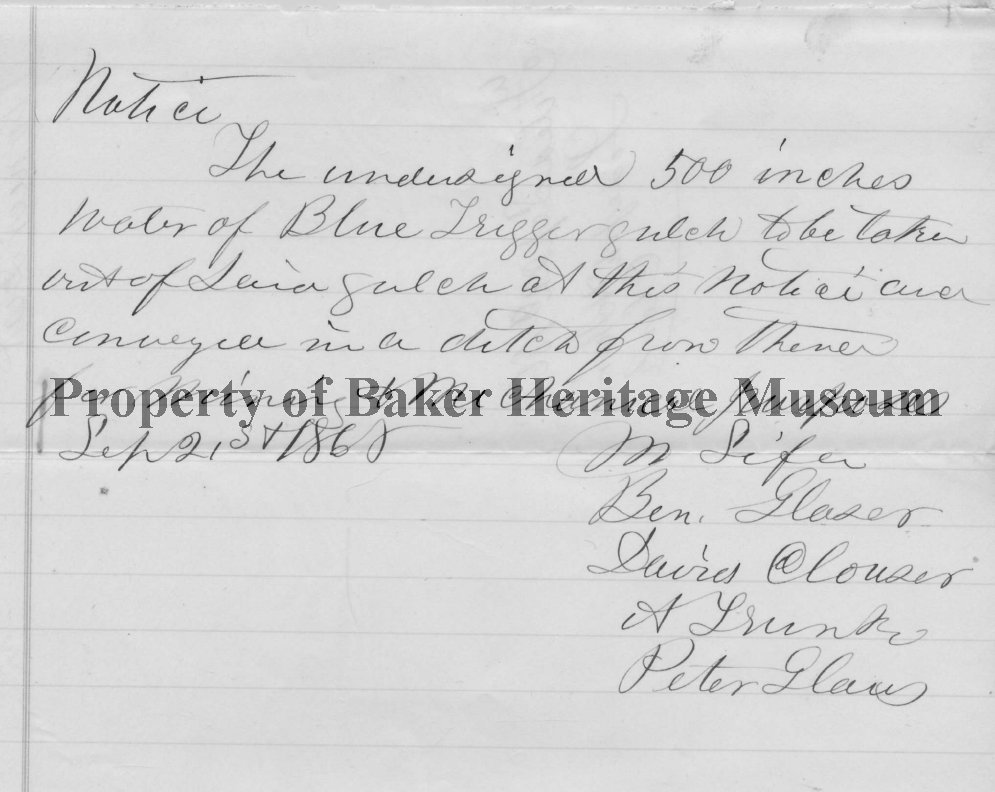 Notice
The undersigned 500 inches
Water of Blue Trigger gulch to be taken
out of Said gulch at this Notice and
conveyed in a ditch from thence
for Mining & Mechanical purposes
Property of Baker Heritage Museum
Sep 21st 1868
M Sifer
Ben. Glaser
David Clouser
A Trunk
Peter Glaus